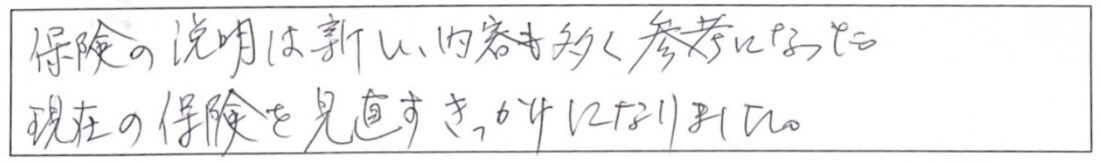 保険の説明は新しい内容も多く参考になった
現在の保険を見直すきっかけになりました。